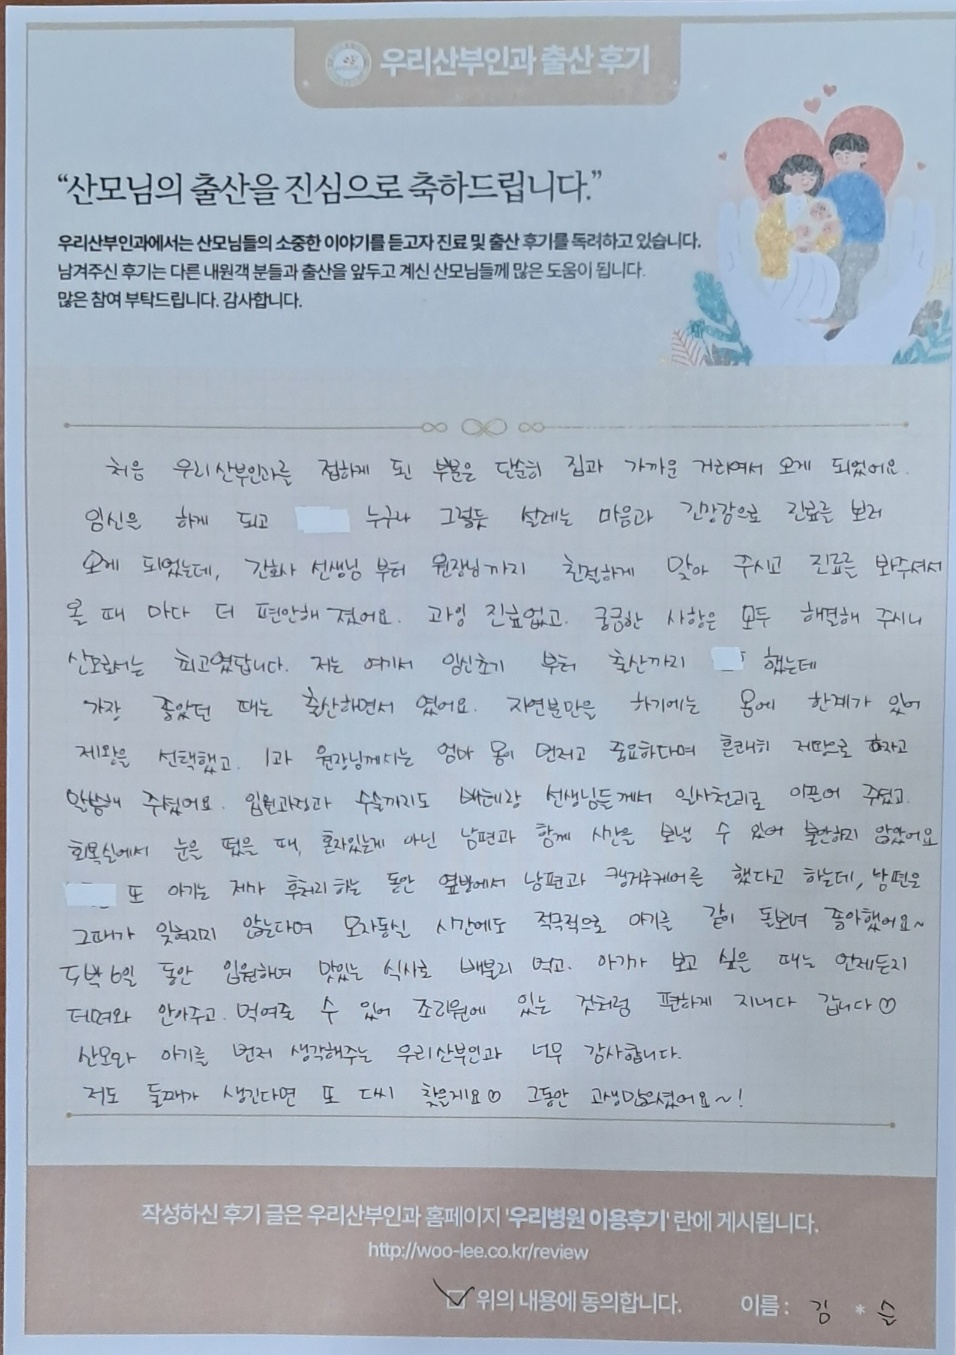 우리산부인과 출산 후기
“산모님의 출산을 진심으로 축하드립니다.”
우리산부인과에서는 산모님들의 소중한 이야기를 듣고자 진료 및 출산 후기를 독려하고 있습니다.
남겨주신 후기는 다른 내원객 분들과 출산을 앞두고 계신 산모님들께 많은 도움이 됩니다.
많은 참여 부탁드립니다. 감사합니다.
처음 우리산부인과를 접하게 된 부분은 단순히 집과 가까운 거리여서 오게 되었어요.
임신을 하게 되고 누구나 그렇듯 설레는 마음과 긴장감으로 진료를 보러
오게 되었는데, 간호사 선생님 부터 원장님까지 친절하게 맞아 주시고 진료를 봐주셔서
올 때 마다 더 편안해 졌어요. 과잉 진료없고. 궁금한 사항은 모두 해결해 주시니
산모로서는 최고였답니다. 저는 여기서 임신초기 부터 출산까지 했는데
가장 좋았던 때는 출산하면서 였어요. 자연분만을 하기에는 몸에 한계가 있어
제왕을 선택했고. 1과 원장님께서는 엄마 몸이 먼저고 중요하다며 흔쾌히 저땅으로 하자고
말씀해 주셨어요. 입원과정과 수술까지도 베테랑 선생님들께서 일사천리로 이끌어 주셨고.
회복실에서 눈을 떴을 때, 혼자있는게 아닌 남편과 함께 시간을 보낼 수 있어 불안하지 않았어요
또 아기는 제가 후처리 하는 동안 옆방에서 남편과 캥거루케어를 했다고 하는데, 남편은
그때가 잊혀지지 않는다며 모자동실 시간에도 적극적으로 아기를 같이 돌보며 좋아했어요~
5박 6일 동안 입원하며 맛있는 식사로 배불리 먹고. 아기가 보고 싶은 때는 언제든지
데려와 안아주고 먹여줄 수 있어 조리원에 있는 것처럼 편하게 지내다 갑니다♡
산모와 아기를 먼저 생각해주는 우리산부인과 너무 감사합니다.
저도 둘째가 생긴다면 또 다시 찾을게요♡ 그동안 고생많으셨어요~!
작성하신 후기 글은 우리산부인과 홈페이지 '우리병원 이용후기' 란에 게시됩니다.
http://woo-lee.co.kr/review
위의 내용에 동의합니다. 이름 : 김 * 슬